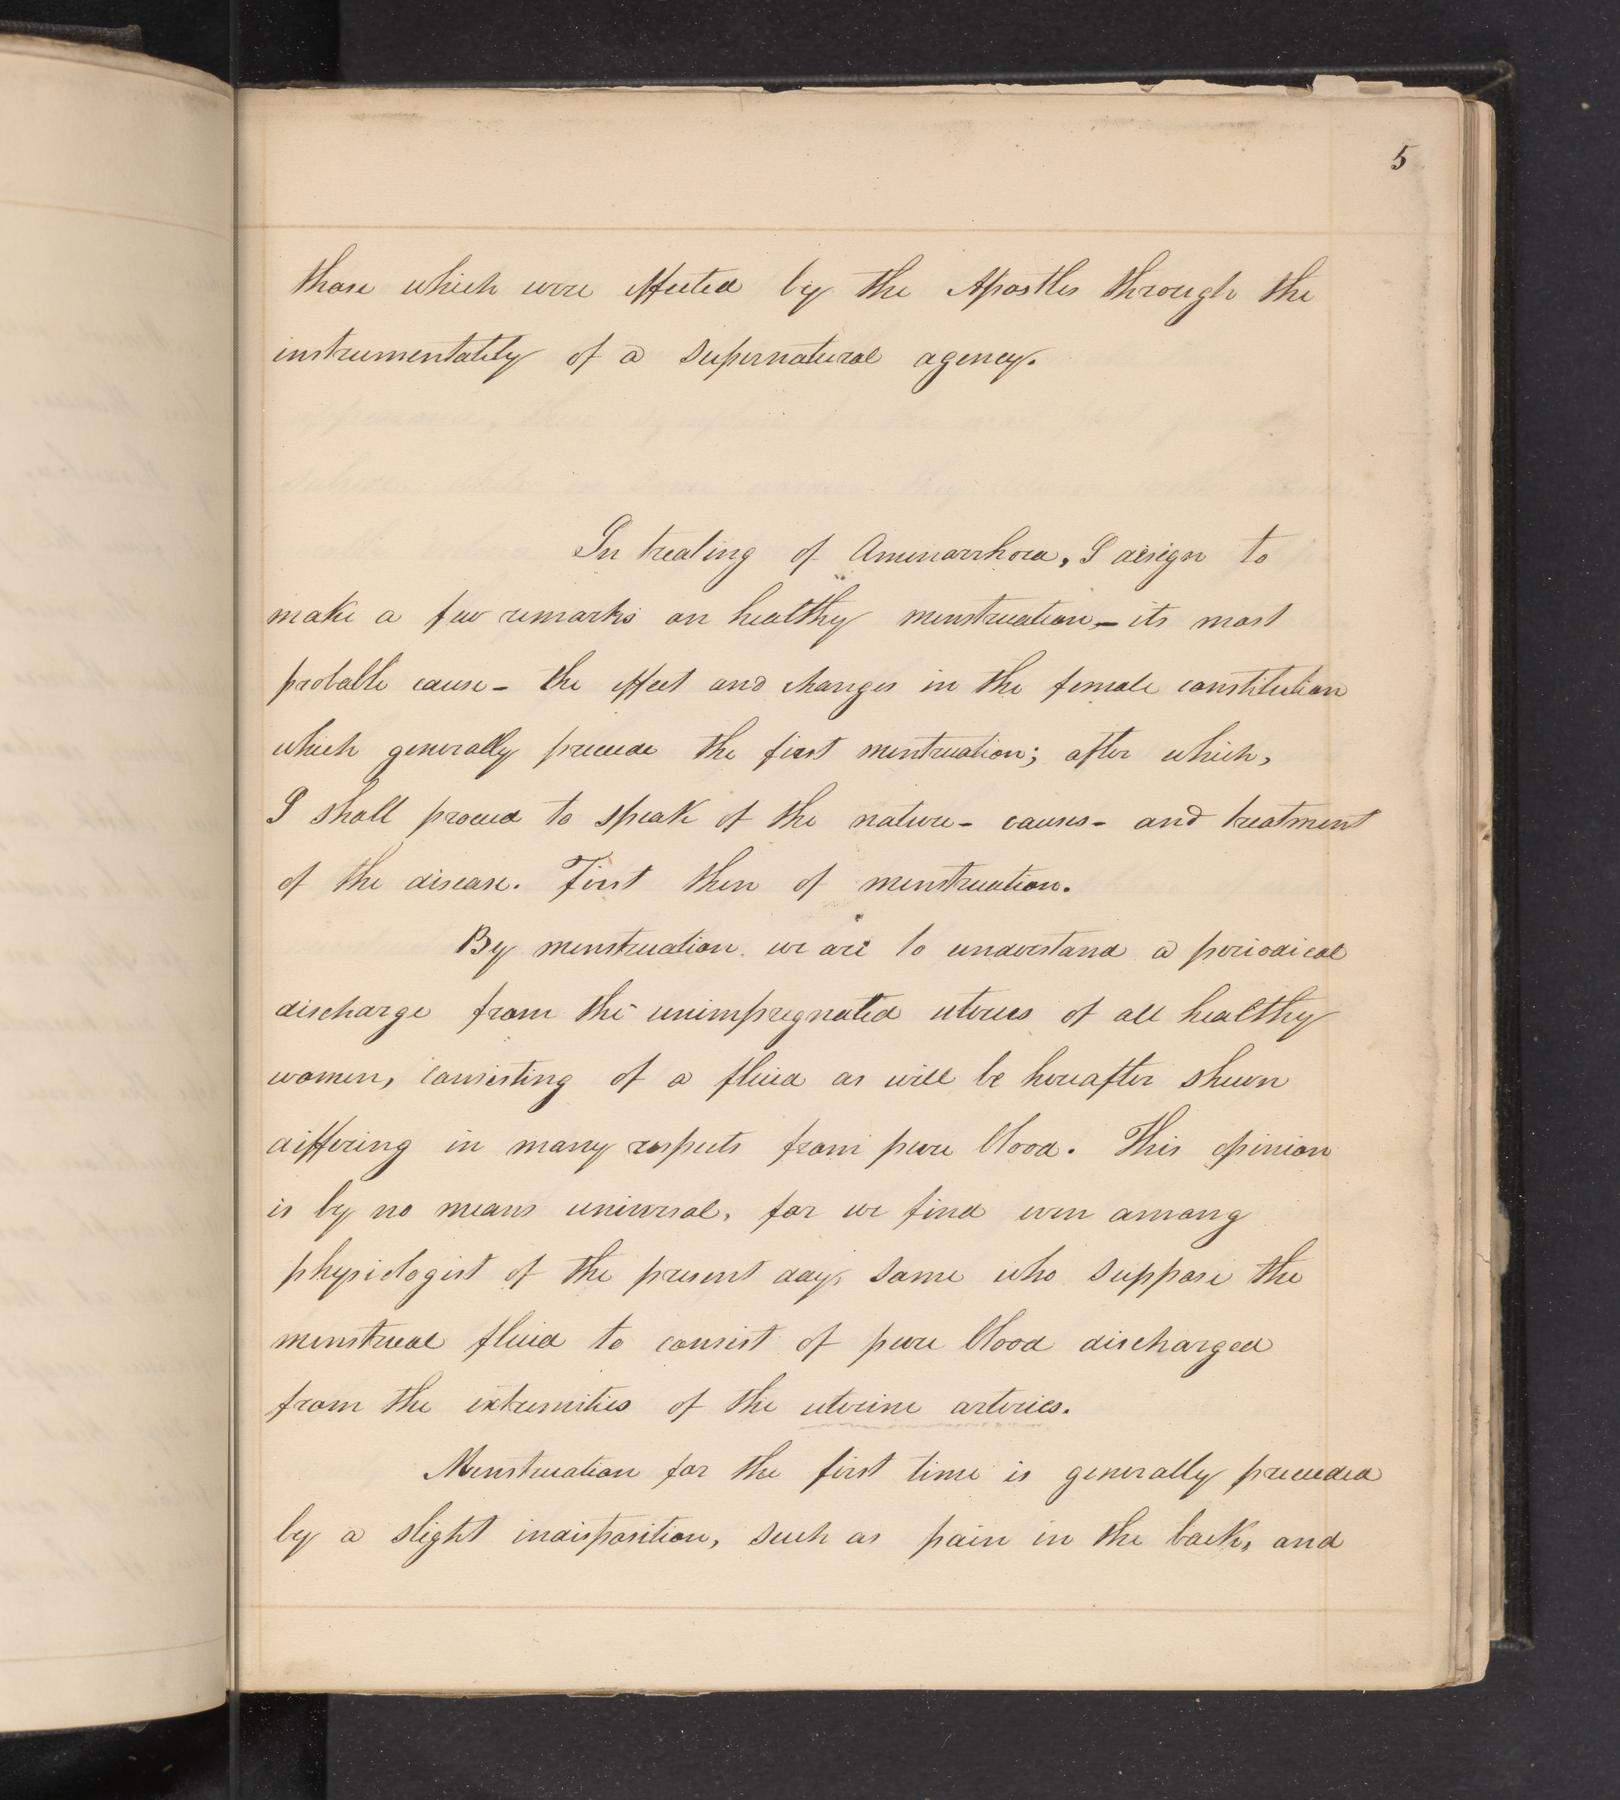 5
those which were effected by the Apostles through the
instrumentality of a supernatural agency.
In treating of Amenorrhoea, I design to
make a few remarks on healthy menstruation – its most
probable cause – the effect and changes in the female constitution
which generally precede the first mentruation; after which,
I shall proceed to speak of the nature – causes – and treatment
of the disease. First then of menstruation.
By menstruation we are to understand a periodical
discharge from the unimpregnated uterus of all healthy
women, consisting of a fluid as will be hereafter shewn
differing in many respects from pure blood. This opinion
is by no means universal, for we find even among
physiologist of the present day, some who suppose the
menstrual fluid to consist of pure blood discharged
from the extremities of the uterine arteries.
Menstruation for the first time is generally preceeded
by a slight indisposition, such as pain in the back, and